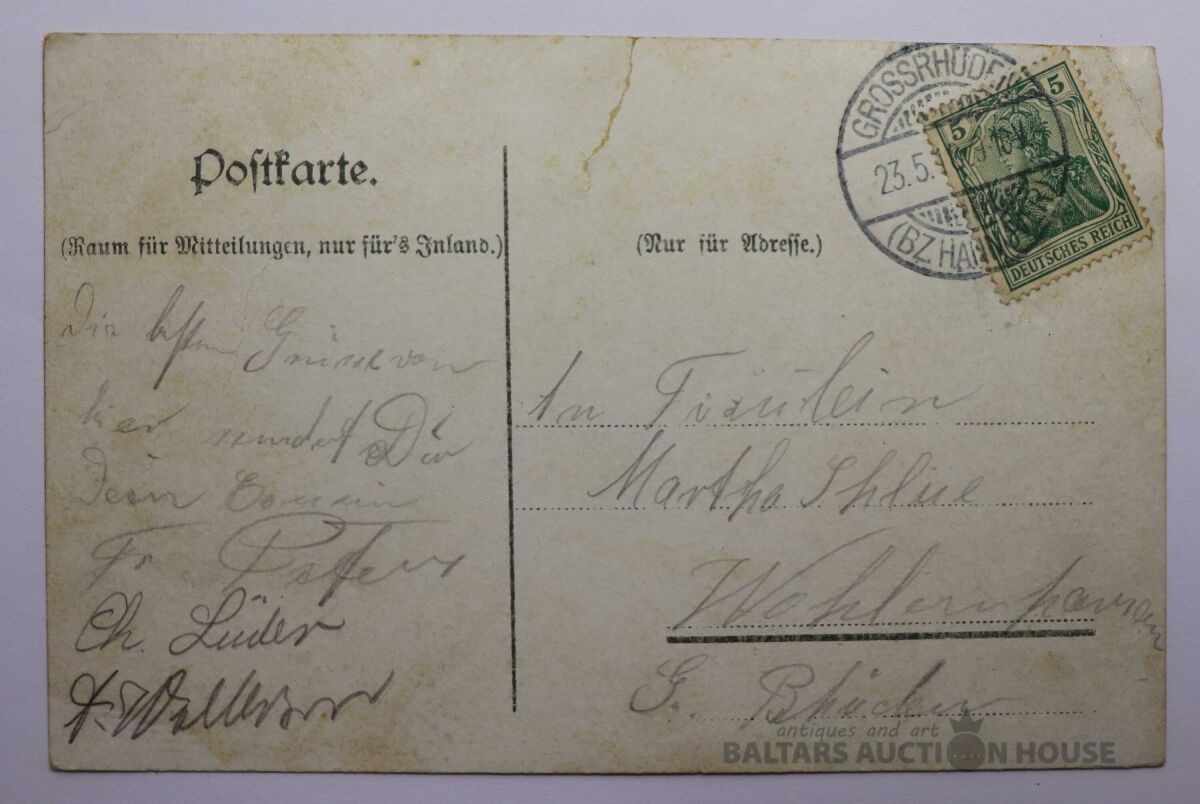 Postkarte.
(Raum für Mitteilungen, nur für's Inland.)
Die besten Grüsse von
hier sendet Dir
Dein Cousin
Fr. Peters
Ch. Lüder
(Nur für Adresse.)
GROSSRHÜDEN
23.5.
(BZ HANN
5
5
DEUTSCHES REICH
An Fräulein
Martha
G.
antiques and art
BALTARS AUCTION HOUSE